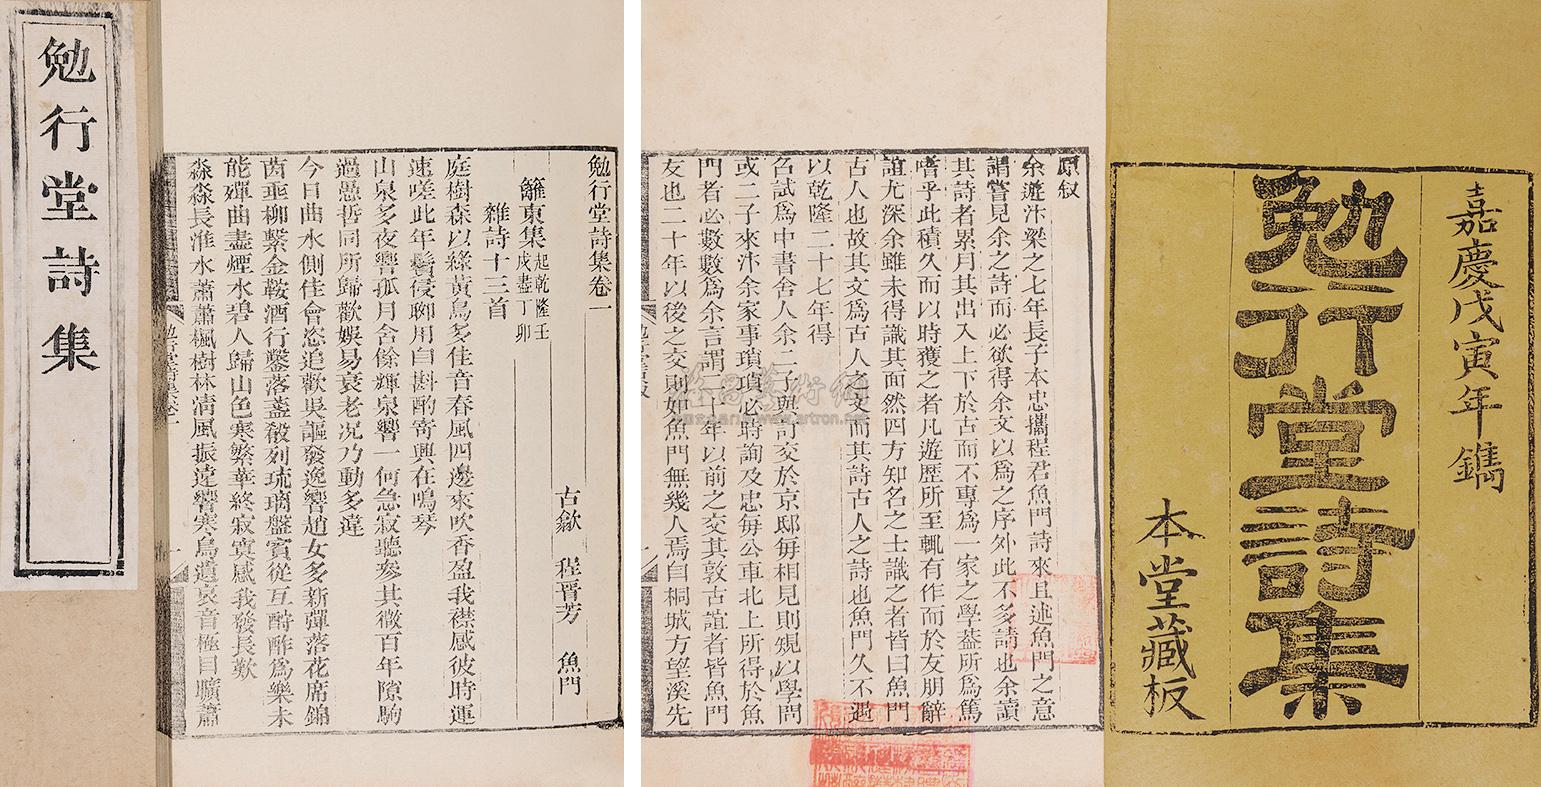 嘉慶戊寅年鐫
勉行堂詩集
本堂藏板
原叙
余遊汴梁之七年長子本忠攜程君魚門詩來且述魚門之意
謂嘗見余之詩而必欲得余文以為之序外此不多請也余讀
其詩者累月其出入上下於古而不專為一家之學葢所為篤
嗜乎此積久而以時獲之者凡遊歴所至輒有作而於友朋辭
誼尤深余雖未得識其面然四方知名之士識之者皆曰魚門
古人也故其文為古人之文而其詩古人之詩也魚門久不遇
以乾隆二十七年得
召試為中書舍人余二子與訂交於京邸每相見則規以學問
或二子來汴余家事瑣瑣必時詢及忠每公車北上所得於魚
門者必數數為余言謂二十年以前之交其敦古誼者皆魚門
友也二十年以後之交則如魚門無幾人焉自桐城方望溪先
勉行堂詩集
勉行堂詩集卷一
古歙 程晉芳 魚門
籬東集起乾隆壬戌盡丁卯
雜詩十三首
庭樹森以綠黃鳥多佳音春風四邊來吹香盈我襟感彼時運
速嗟此年鬢侵聊用自斟酌寄興在鳴琴
山泉多夜響孤月舍餘輝泉響一何急寂聽參其微百年隙駒
過愚哲同所歸歡娛易衰老況乃動多違
今日曲水側佳會恣追歡吳謳發逸響趙女多新彈落花席錦
茵垂柳繫金鞍酒行鑿落盞殽列琉璃盤賓從互酬酢為樂未
能殫曲盡煙水碧人歸山色寒繁華終寂寞感我發長歎
淼淼長淮水蕭蕭楓樹林淒風振遠響寒鳥遺哀音極目曠蕭